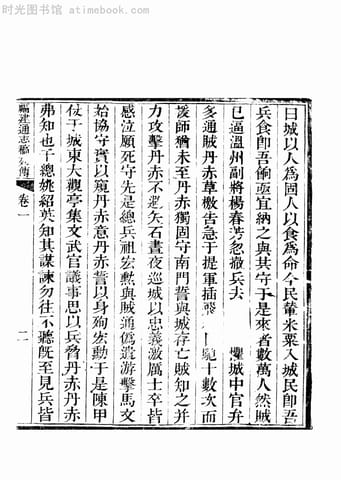 时光图书馆 - atimebook.com
曰城以人為固人以食為命今民輦米粟入城民卽吾
兵食卽吾餉亟宜納之與其守于是來者數萬人然賊
已逼溫州副將楊春芳忽撤兵去 懼城中官弁
多通賊丹赤草檄告急于提軍插 一 十數次而
援師猶未至丹赤獨固守南門誓與城存亡賊知之并
力攻擊丹赤不避矢石晝夜巡城以忠義激厲士卒皆
感泣願死守先是總兵祖宏勳與賊通僞遣游擊馬文
始協守實以窺丹赤意丹赤誓以身殉宏勳于是陳甲
仗于城東大觀亭集文武官議事思以兵脅丹赤丹赤
弗知也千總姚紹英知其謀諫勿往不聽旣至見兵皆
福建通志 列傳 卷一 二